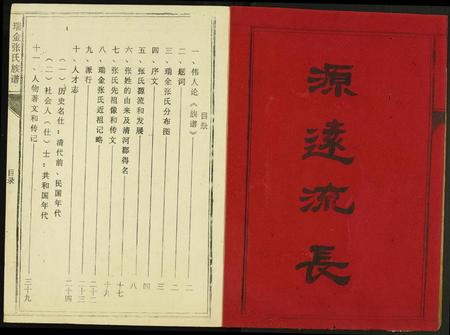 源遠流長
目录
一、伟人论《族谱》 一
二、题词 二
三、瑞金张氏分布图 三
四、序文 四
五、张氏源流和发展
六、张姓的由来及清河郡得名 八
七、张氏先祖像和传文 十七
八、瑞金张氏近祖记略 十九
九、派行 二十二
十、人才志 二十三
（一）历史名仕：清代前、民国年代
（二）社会人（仕）士：共和国年代 二十四
十一、人物著文和传记 三十九
瑞金张氏族谱
目录